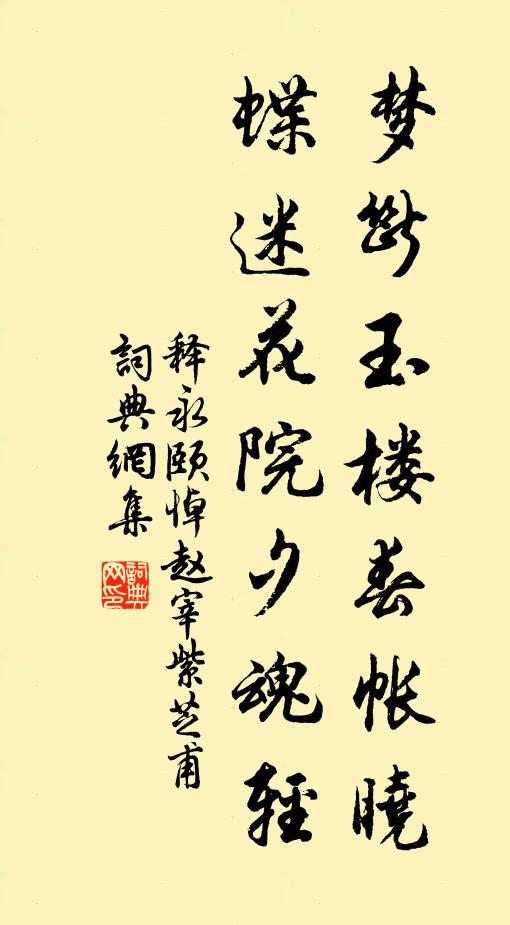 梦断玉楼春帐晓
蝶迷花院夕魂轻
释永颐悼赵宰紫芝甫
詞典網集
詞典网印